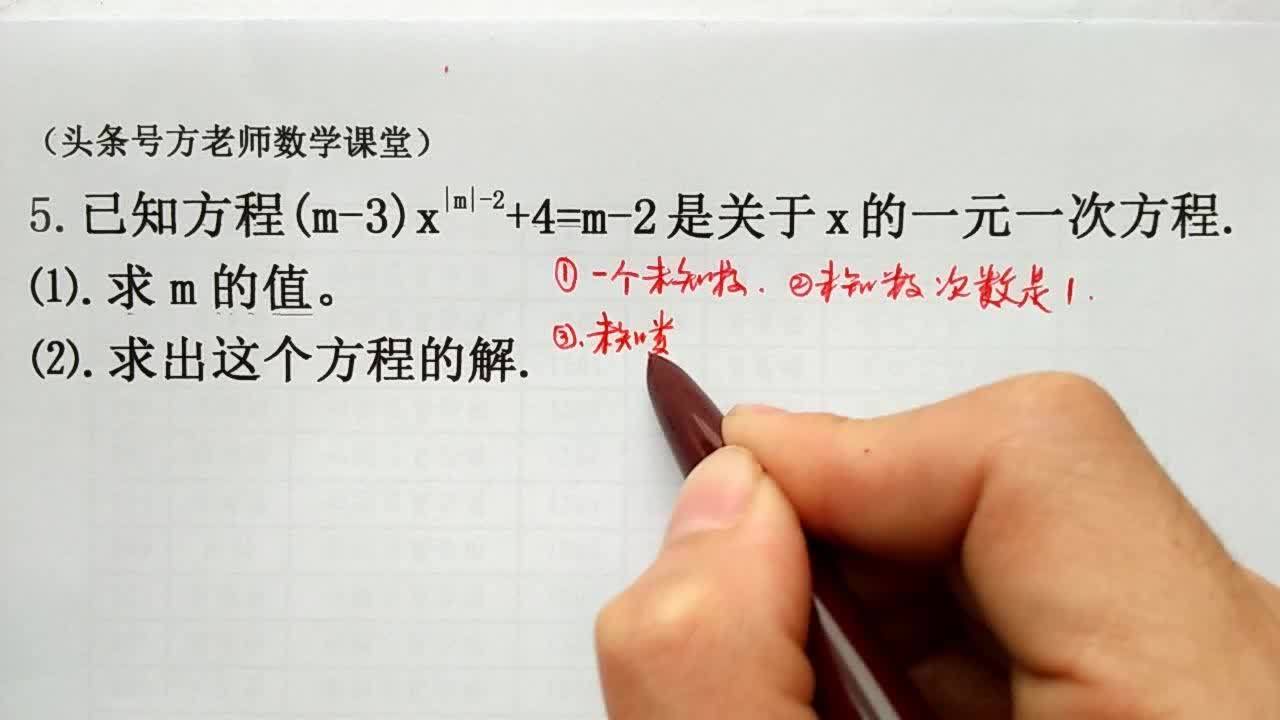 （头条号方老师数学课堂）
5.已知方程(m-3)x^|m|-2+4=m-2是关于x的一元一次方程.
(1).求m的值。
①一个未知数.②未知数次数是1.
(2).求出这个方程的解.
③.未知